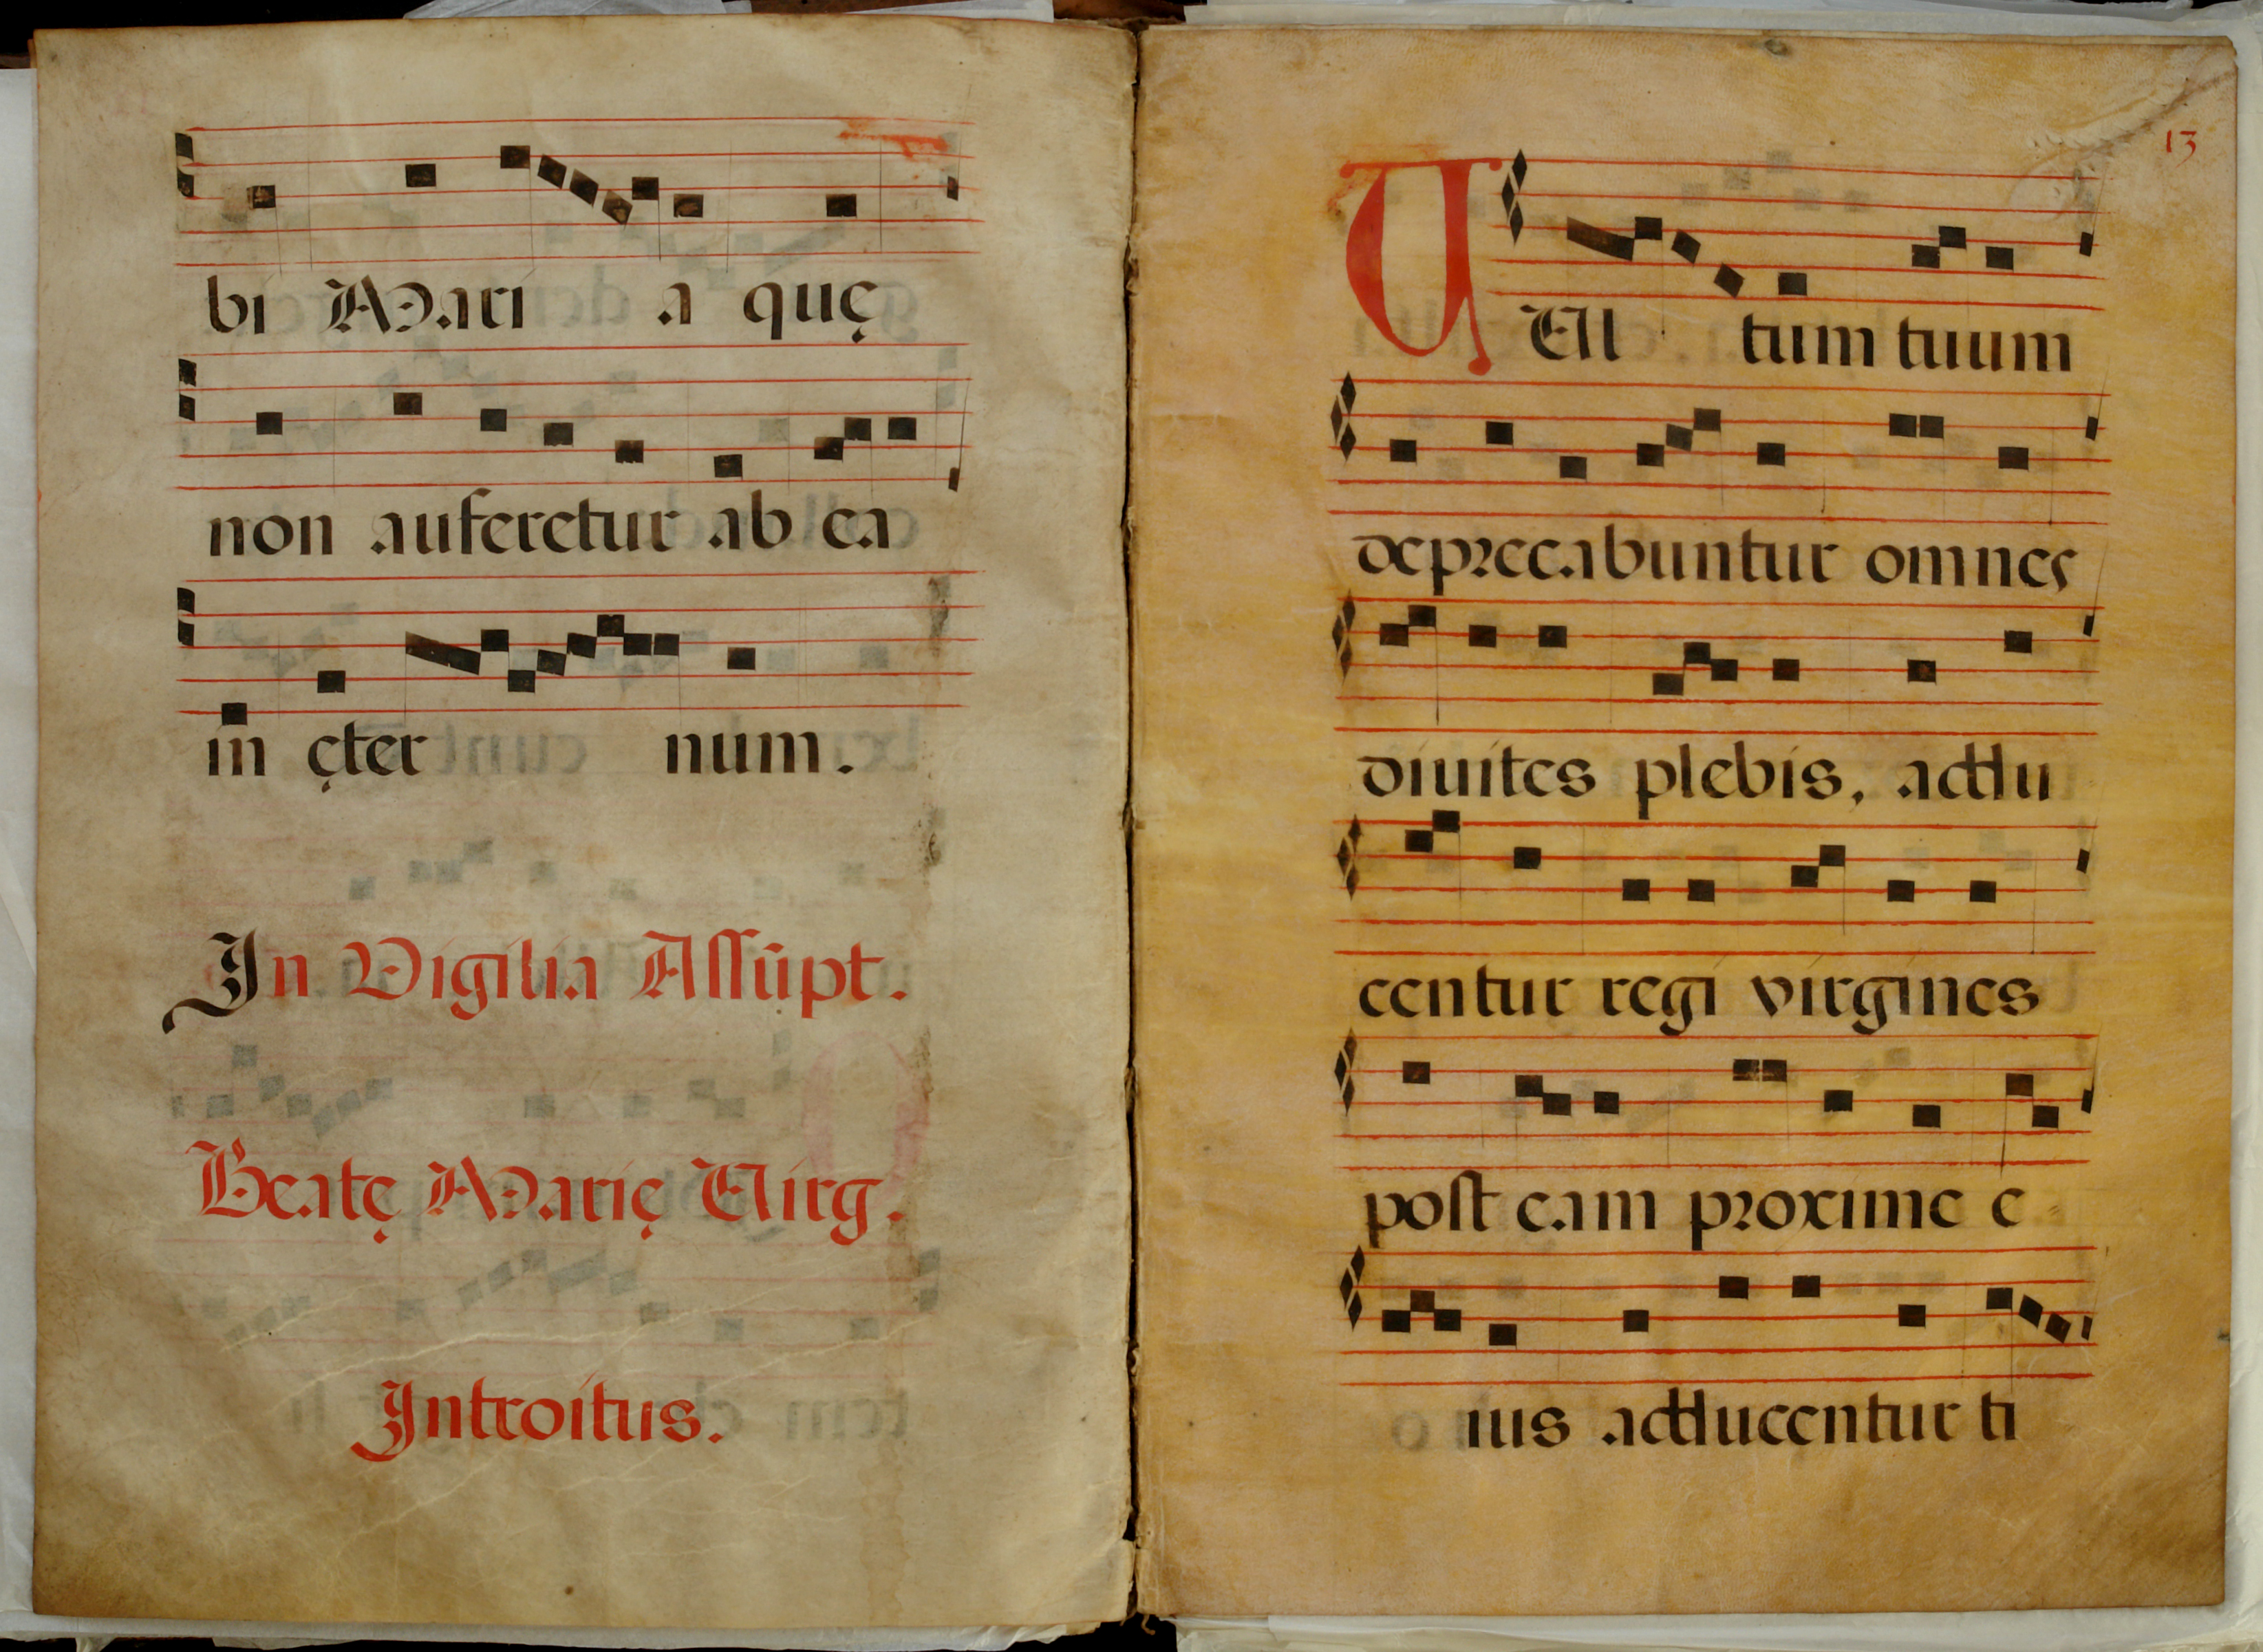 bi Mari a quę
non auferetur ab ea
in ęter num.
In Vigilia Assūpt.
Beatę Marię Virg.
Introitus.
13
VVl tum tuum
deprecabuntur omnes
diuites plebis, addu
centur regi virgines
post eam proxime e
ius adducentur ti